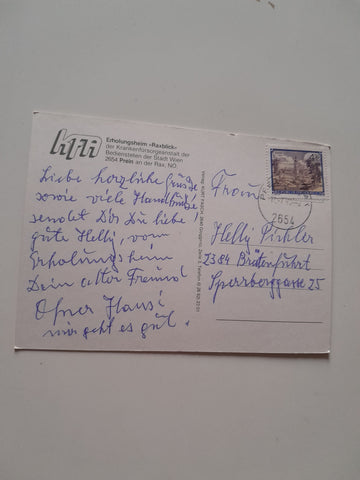 Erholungsheim »Raxblick«
der Krankenfürsorgeanstalt der
Bediensteten der Stadt Wien
2654 Prein an der Rax, NÖ.
Liebe herzliche Grüsse
sowie viele Handküsse
sendet Dir Du liebe
gute Helly, vom
Erholungsheim
Dein alter Freund
Hans!
mir geht es gut.
Frau
Helly Pichler
2384 Breitenfurt
Sperrberggasse 25
2654